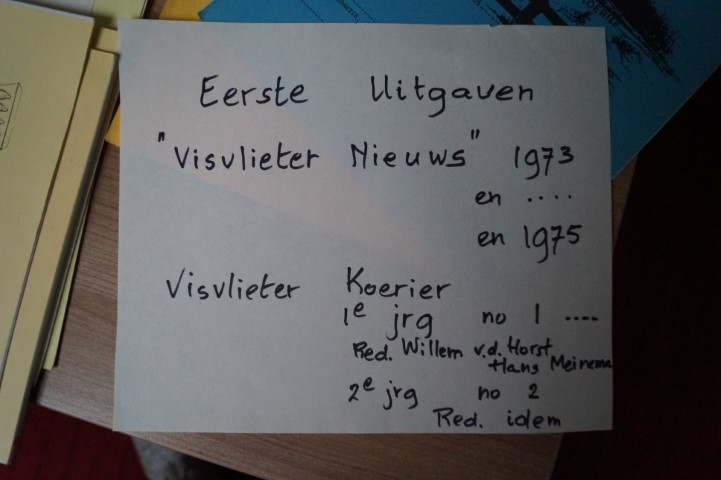 Eerste Uitgaven
"Visvlieter Nieuws" 1973
en ....
en 1975
Visvlieter Koerier
1e jrg no 1 ....
Red. Willem v.d. Horst
Hans Meinema
2e jrg no 2
Red. idem